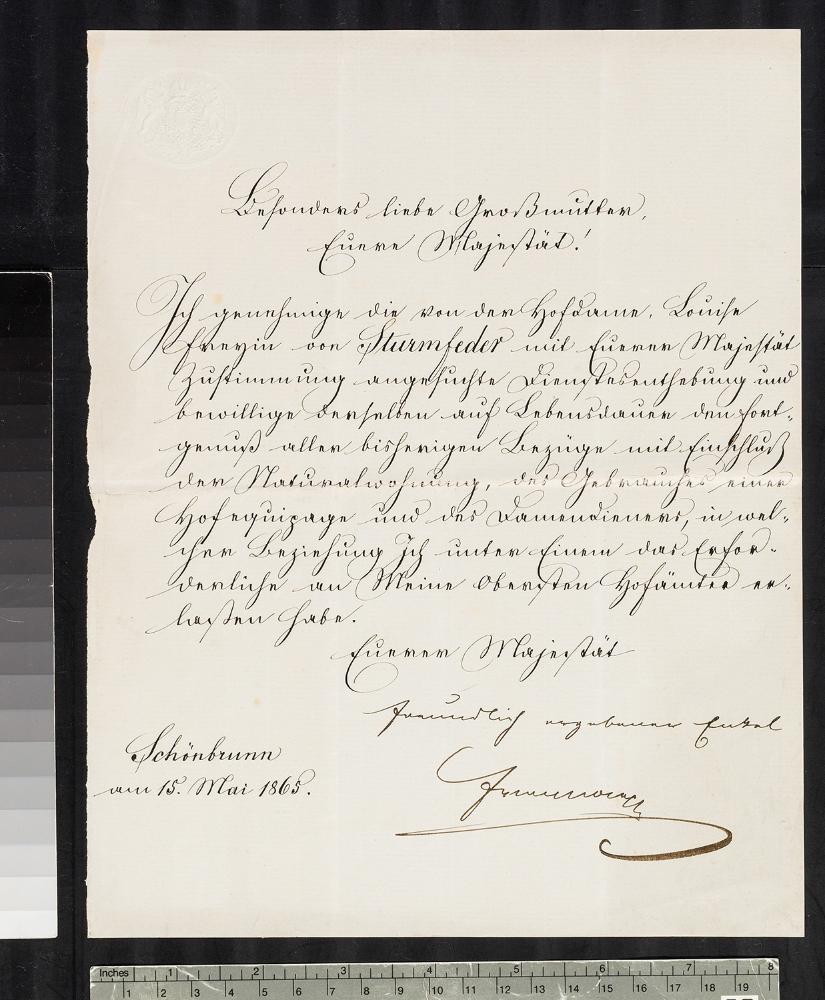 Besonders liebe Großmutter,
Euere Majestät!
Ich genehmige die von der Hofdame, Louise
Freyin von Sturmfeder mit Euerer Majestät
Zustimmung angesuchte Dienstesenthebung und
bewillige derselben auf Lebensdauer den Fort-
genuß aller bisherigen Bezüge mit Einschluß
der Naturalwohnung, des Gebrauches einer
Hofequipage und des Damendieners, in wel-
cher Beziehung Ich unter Einem das Erfor-
derliche an Meine Obersten Hofämter er-
lassen habe.
Euerer Majestät
freundlich ergebener Enkel
Schönbrunn
am 15. Mai 1865.
Inches 1 2 3 4 5 6 7 8
1 2 3 4 5 6 7 8 9 10 11 12 13 14 15 16 17 18 19